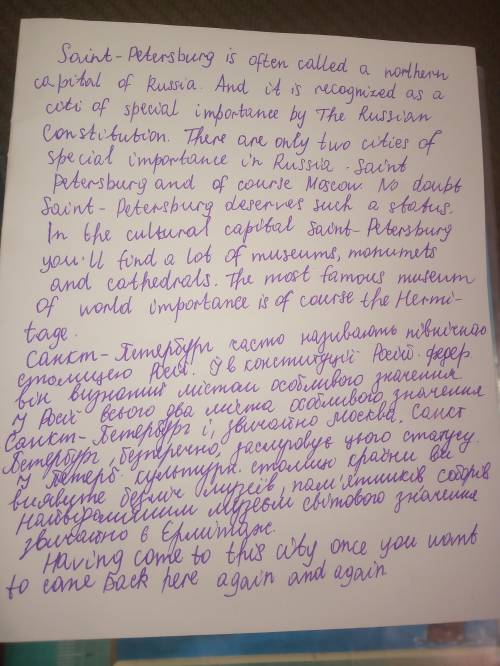 Saint-Petersburg is often called a northern
capital of Russia. And it is recognized as a
citi of special importance by The Russian
Constitution. There are only two cities of
special importance in Russia. Saint
Petersburg and of course Moscow. No doubt
Saint-Petersburg deserves such a status.
In the cultural capital Saint-Petersburg
you'll find a lot of museums, monumets
and cathedrals. The most famous museum
of world importance is of course the Hermi-
tage.
Санкт-Петербург часто називають північною
столицею Росії. І в конституції Росій. федер
він визнаний містом особливого значення
У Росії всього два міста особливого значення
Санкт-Петербург і, звичайно Москва. Санкт
Петербург, безперечно, заслуговує цього статусу.
У Петерб. культурн. столицю країни ви
виявите безліч музеїв, пам'ятників соборів
Найвідомішим музеєм світового значення
звичайно є Ермітаж.
Having come to this city once you want
to come back here again and again